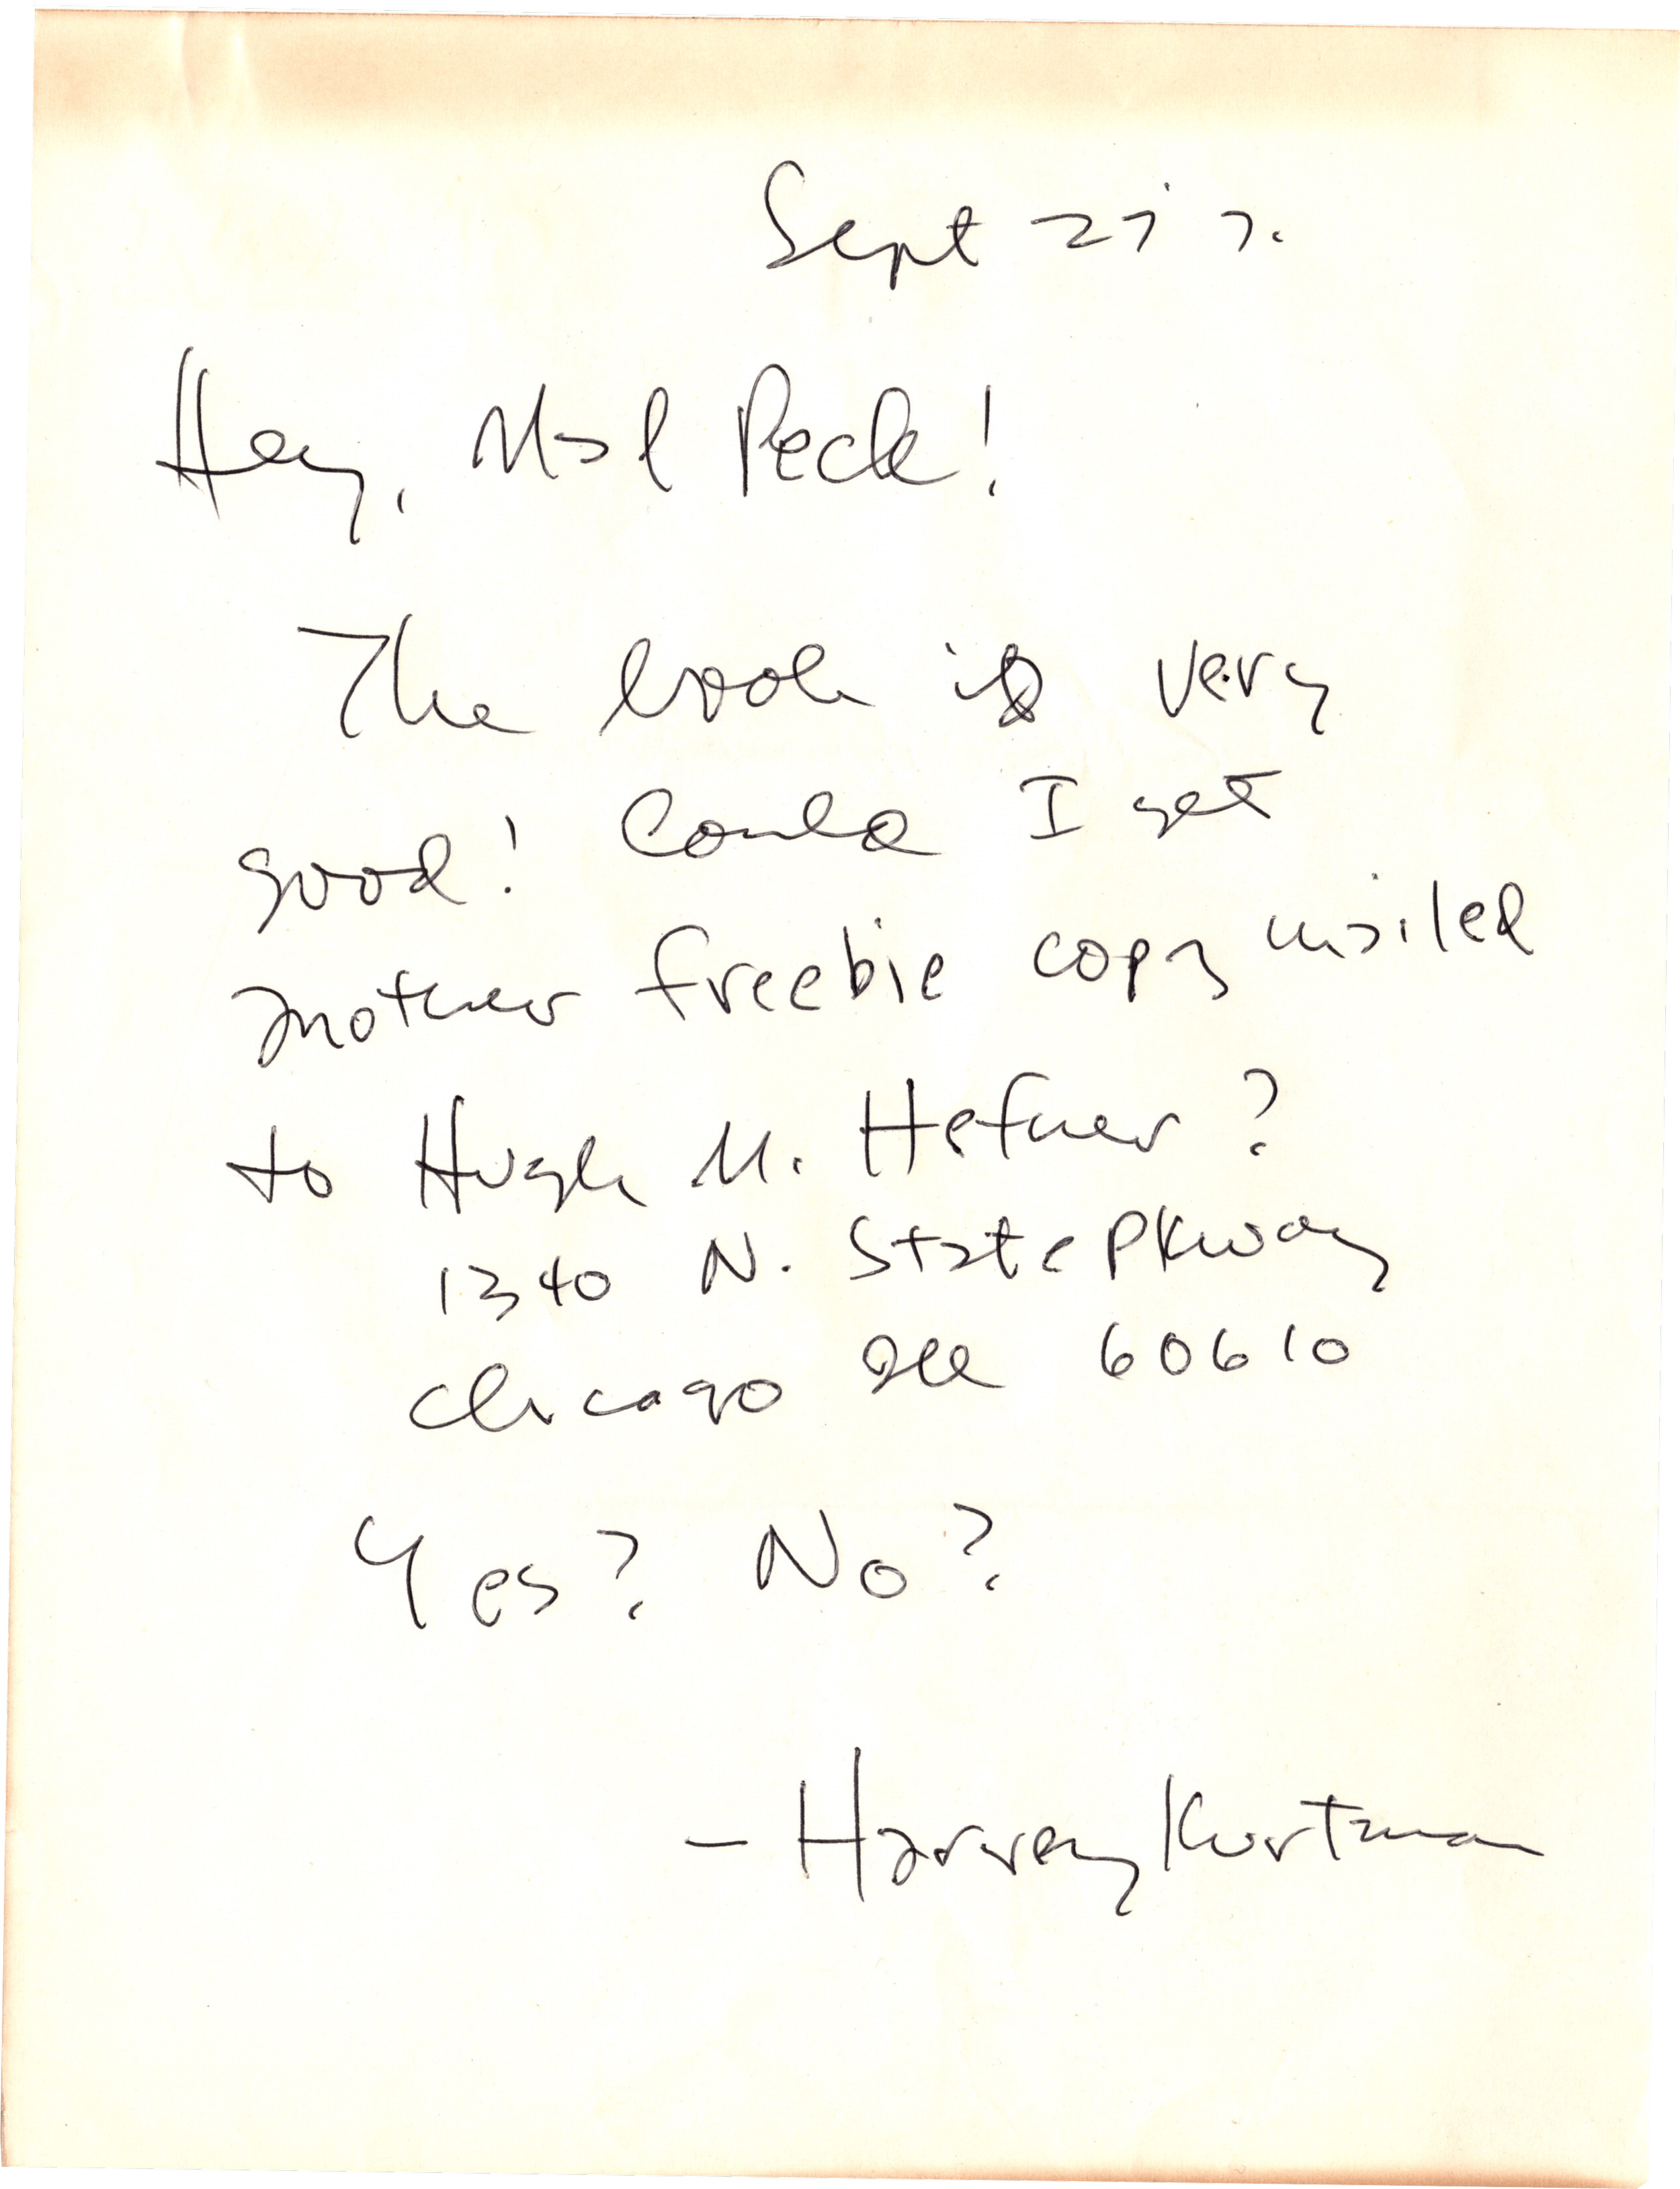 Sept 27 7.
Hey, Mal Peck!
The book is very
good! Could I get
another freebie copy mailed
to Hugh M. Hefner?
1340 N. State Pkway
Chicago Ill 60610
Yes? No?
– Harvey Kurtzman